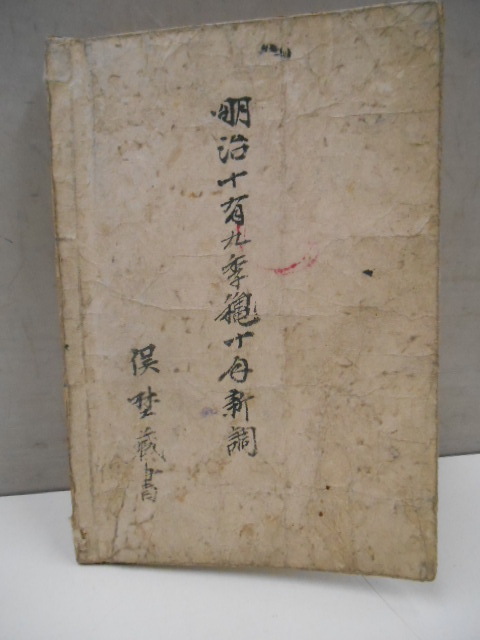 明治十有九季穐十月新調
俣埜蔵書